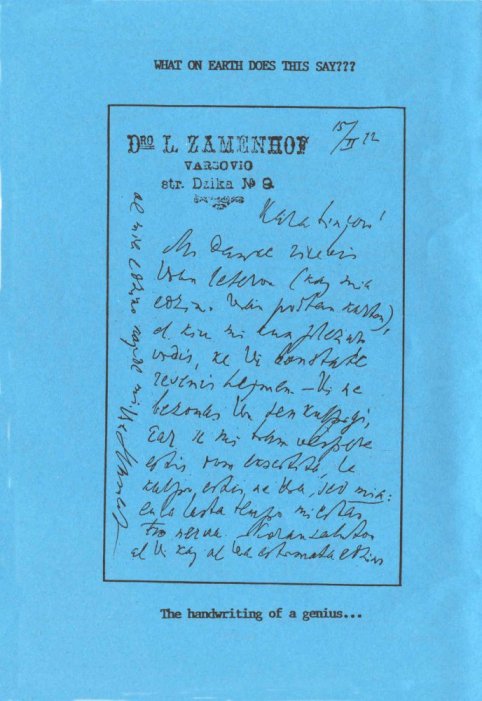 WHAT ON EARTH DOES THIS SAY???
DRO L. ZAMENHOF
VARSOVIO
str. Dzika № 9.
15/II 12
Kara Sinjoro!
Mi danke ricevis
Vian leteron (kaj mia
edzino Vian poŝtan karton),
el kiu mi kun plezuro
vidis, ke Vi bonstate
revenis hejmen. — Vi ne
bezonas Vin senkulpigi,
ĉar se mi iam vespere
estis iom ekscitita, la
kulpo estis ne Via, sed mia:
en la lasta tempo mi estas
tro nerva. Koran saluton
al Vi kaj al Via estimata edzino
mia edzino kaj de mi
The handwriting of a genius...